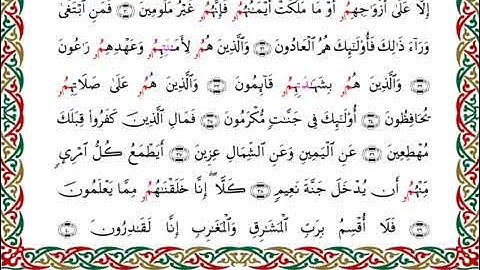 إِلَّا عَلَىٰٓ أَزْوَٰجِهِمُۥٓ أَوْ مَا مَلَكَتْ أَيْمَٰنُهُمُۥ فَإِنَّهُمُۥ غَيْرُ مَلُومِينَ ٣٠ فَمَنِ ٱبْتَغَىٰ
وَرَآءَ ذَٰلِكَ فَأُوْلَٰٓئِكَ هُمُ ٱلْعَادُونَ ٣١ وَٱلَّذِينَ هُمُۥ لِأَمَٰنَتِهِمُۥ وَعَهْدِهِمُۥ رَٰعُونَ
٣٢ وَٱلَّذِينَ هُمُۥ بِشَهَٰدَتِهِمُۥ قَآئِمُونَ ٣٣ وَٱلَّذِينَ هُمُۥ عَلَىٰ صَلَاتِهِمُۥ
يُحَافِظُونَ ٣٤ أُوْلَٰٓئِكَ فِى جَنَّٰتٍ مُّكْرَمُونَ ٣٥ فَمَالِ ٱلَّذِينَ كَفَرُوا۟ قِبَلَكَ
مُهْطِعِينَ ٣٦ عَنِ ٱلْيَمِينِ وَعَنِ ٱلشِّمَالِ عِزِينَ ٣٧ أَيَطْمَعُ كُلُّ ٱمْرِئٍ
مِّنْهُمُۥٓ أَن يُدْخَلَ جَنَّةَ نَعِيمٍ ٣٨ كَلَّآ ۖ إِنَّا خَلَقْنَٰهُمُۥ مِمَّا يَعْلَمُونَ
٣٩ فَلَآ أُقْسِمُ بِرَبِّ ٱلْمَشَٰرِقِ وَٱلْمَغَٰرِبِ إِنَّا لَقَٰدِرُونَ ٤٠